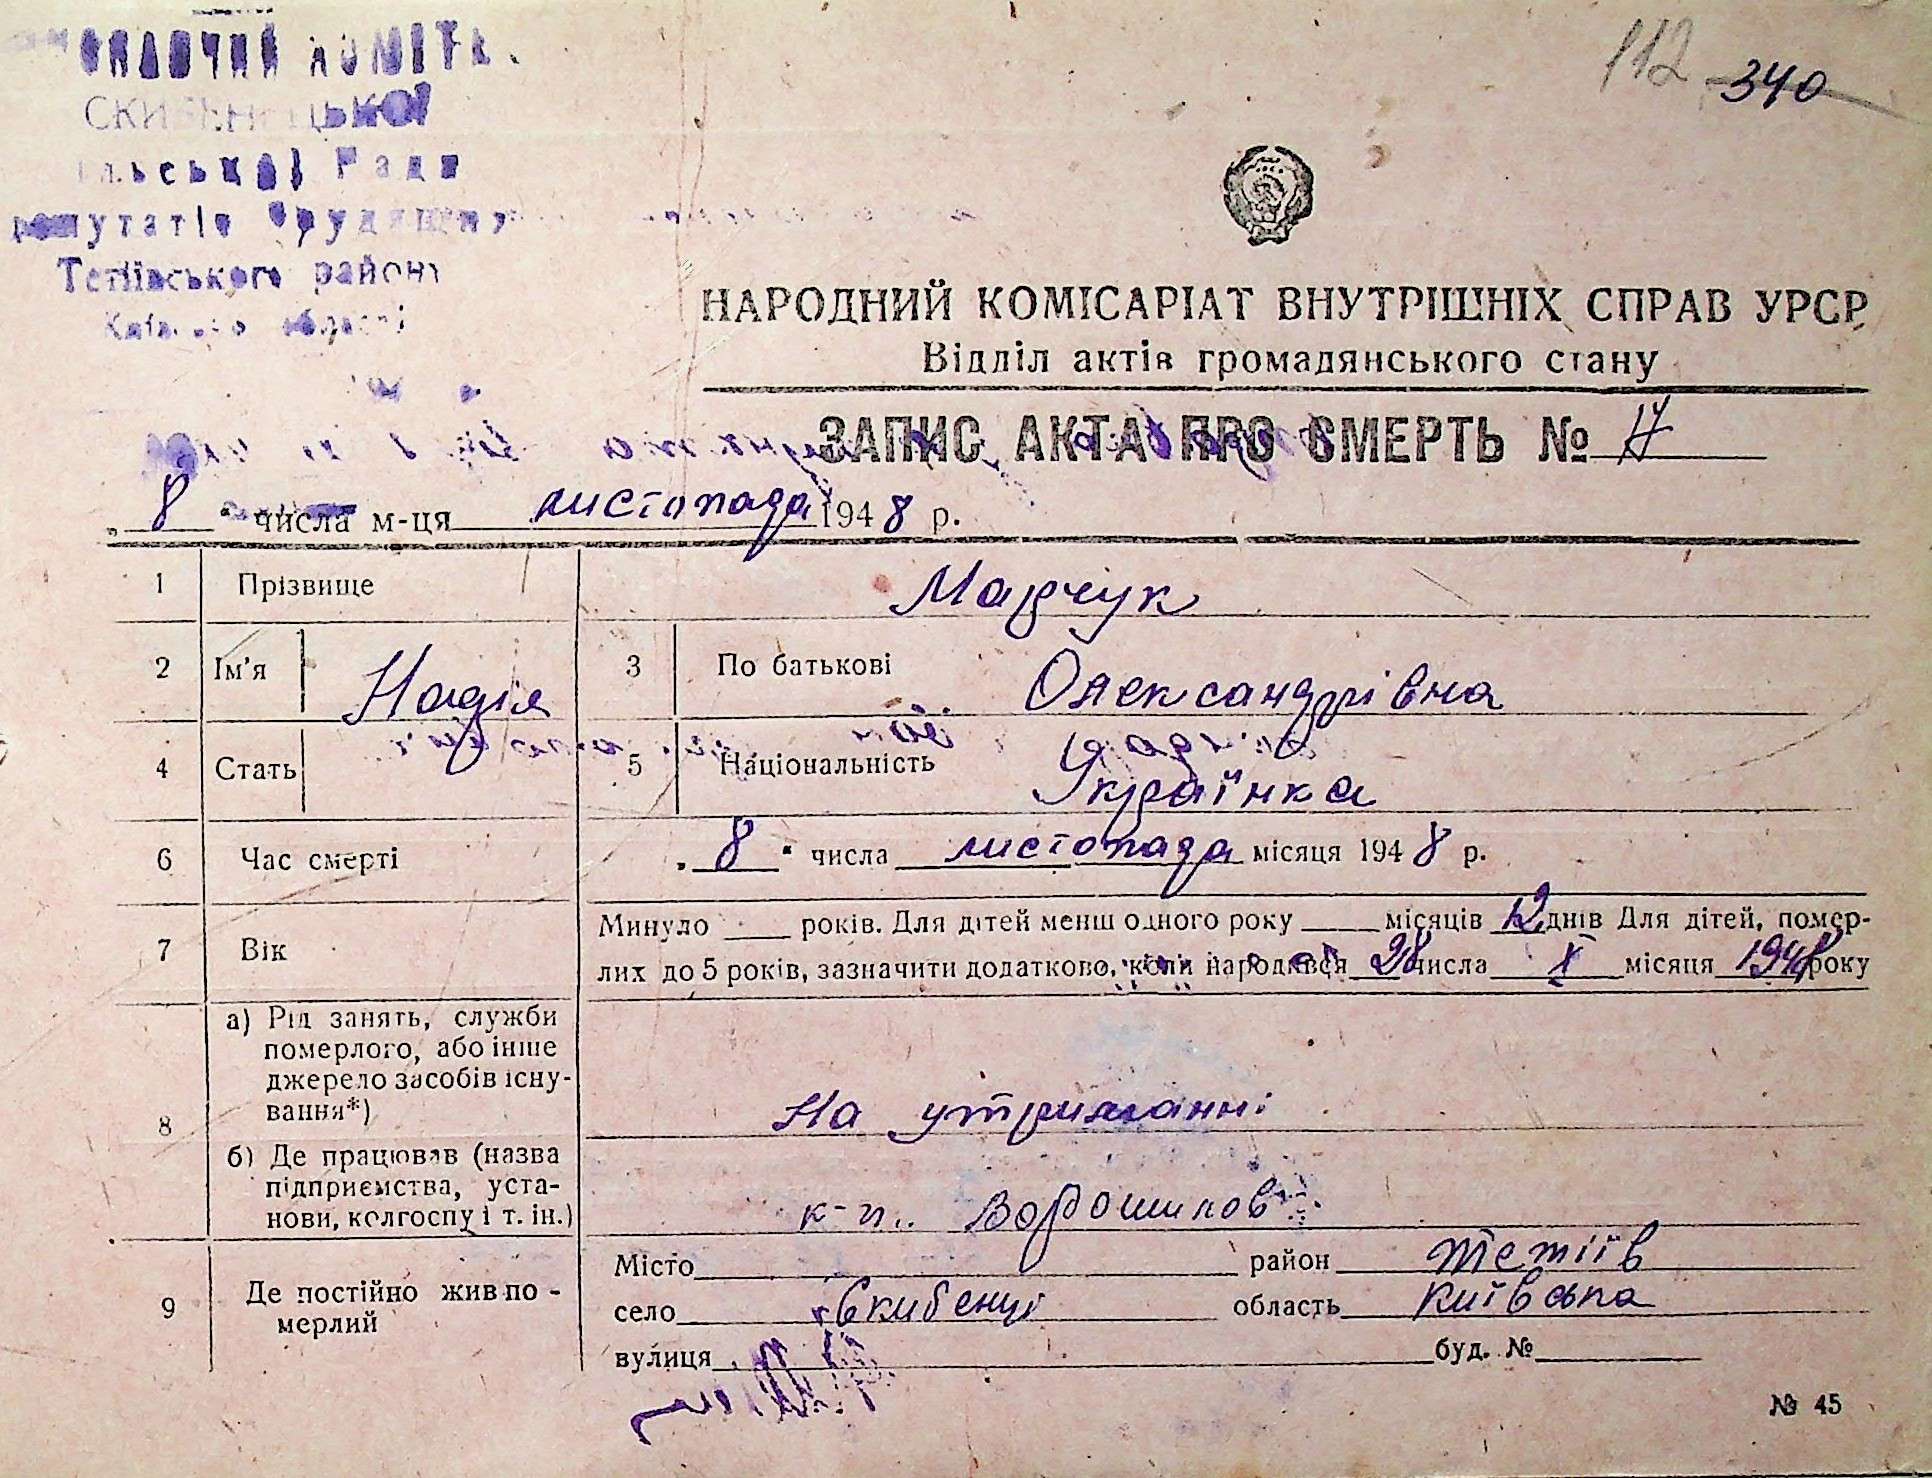 СКИБЕНЕЦЬКОЇ
Ради
депутатів трудящих
Тетіївського району
області
112 340
НАРОДНИЙ КОМІСАРІАТ ВНУТРІШНІХ СПРАВ УРСР
Відділ актів громадянського стану
ЗАПИС АКТА ПРО СМЕРТЬ № 17
„ 8 “ числа м-ця листопада 1948 р.
1 Прізвище Марчук
2 Ім'я Надія 3 По батькові Олександрівна
4 Стать 5 Національність Українка
6 Час смерті „ 8 “ числа листопада місяця 1948 р.
7 Вік Минуло ___ років. Для дітей менш одного року ___ місяців 12 днів Для дітей, помер-
лих до 5 років, зазначити додатково, коли народився 28 числа X місяця 1948 року
8 а) Рід занять, служби
померлого, або інше
джерело засобів існу-
вання*) На утриманні
б) Де працював (назва
підприємства, уста-
нови, колгоспу і т. ін.) Ворошилов
9 Де постійно жив по-
мерлий
Місто район Тетіїв
село Скибенці область Київська
вулиця буд. №
№ 45